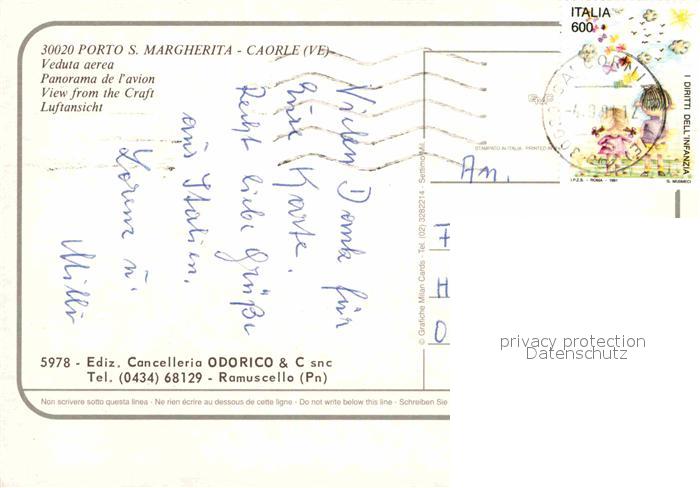 30020 PORTO S. MARGHERITA - CAORLE (VE)
Veduta aerea
Panorama de l'avion
View from the Craft
Luftansicht
Vielen Dank für
Eure Karte.
Recht liebe Grüße
aus Italien.
Lorenz u.
Milli
5978 - Ediz. Cancelleria ODORICO & C snc
Tel. (0434) 68129 - Ramuscello (Pn)
Non scrivere sotto questa linea - Ne rien écrire au dessous de cette ligne - Do not write below this line - Schreiben Sie
© Grafiche Milan Cards - Tel. (02) 3282214 - Settimo Mil
STAMPATO IN ITALIA - PRINTED IN
An.
H
O
ITALIA
600
I DIRITTI DELL'INFANZIA
I.P.Z.S. - ROMA - 1991
privacy protection
Datenschutz